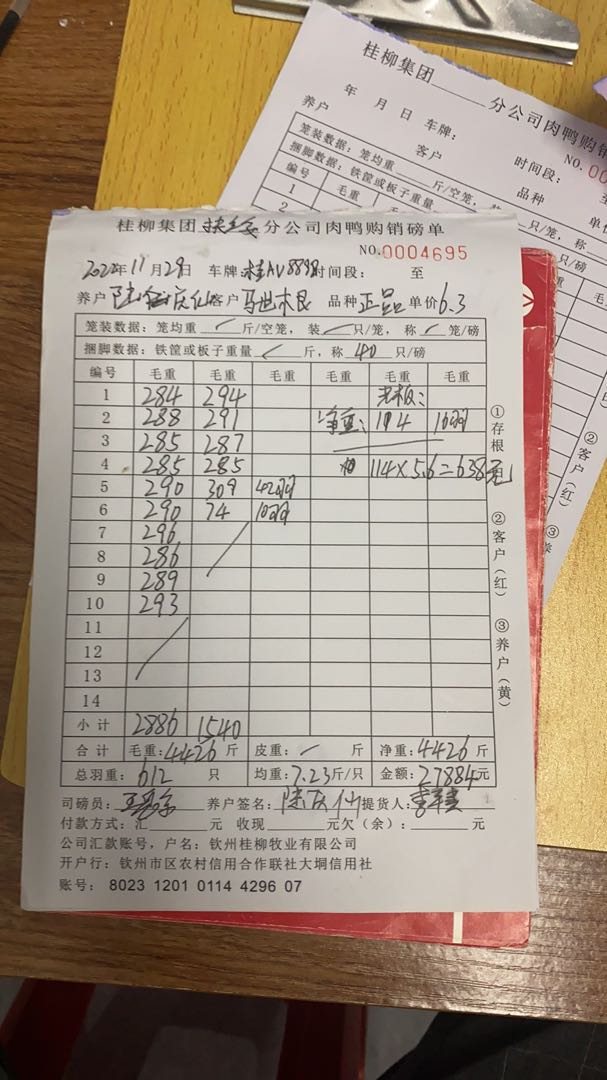 桂柳集团______分公司肉鸭购销
年 月 日 车牌:
NO.
养户 客户 时间段:
品种
笼装数据: 笼均重 斤/空笼, 只/笼, 称
捆脚数据: 铁筐或板子重量 斤, 称
编号 毛重 毛重 毛重
1
2
桂柳集团 分公司肉鸭购销磅单
NO.0004695
年11月29日 车牌: 桂AV8898 时间段: 至
养户 客户 品种 正品 单价6.3
笼装数据: 笼均重 斤/空笼, 装 只/笼, 称 笼/磅
捆脚数据: 铁筐或板子重量 斤, 称 40 只/磅
编号 毛重 毛重 毛重 毛重 毛重 毛重
1 284 294 老板:
2 288 291 净重: 114
3 285 287
4 285 285 114×5.6=638元
5 290 309 42羽
6 290 74 10羽
7 296
8 286
9 289
10 293
11
12
13
14
小计 2886 1540
合计 毛重: 4426 斤 皮重: 斤 净重: 4426 斤
总羽重: 612 只 均重: 7.23斤/只 金额: 27884元
司磅员: 养户签名: 陈庆仙 提货人:
付款方式: 汇______元 收现______元欠(余):______元
公司汇款账号, 户名: 钦州桂柳牧业有限公司
开户行: 钦州市区农村信用合作联社大垌信用社
账号: 8023 1201 0114 4296 07
①存根
②客户(红)
③养户(黄)
②客户(红)
③养